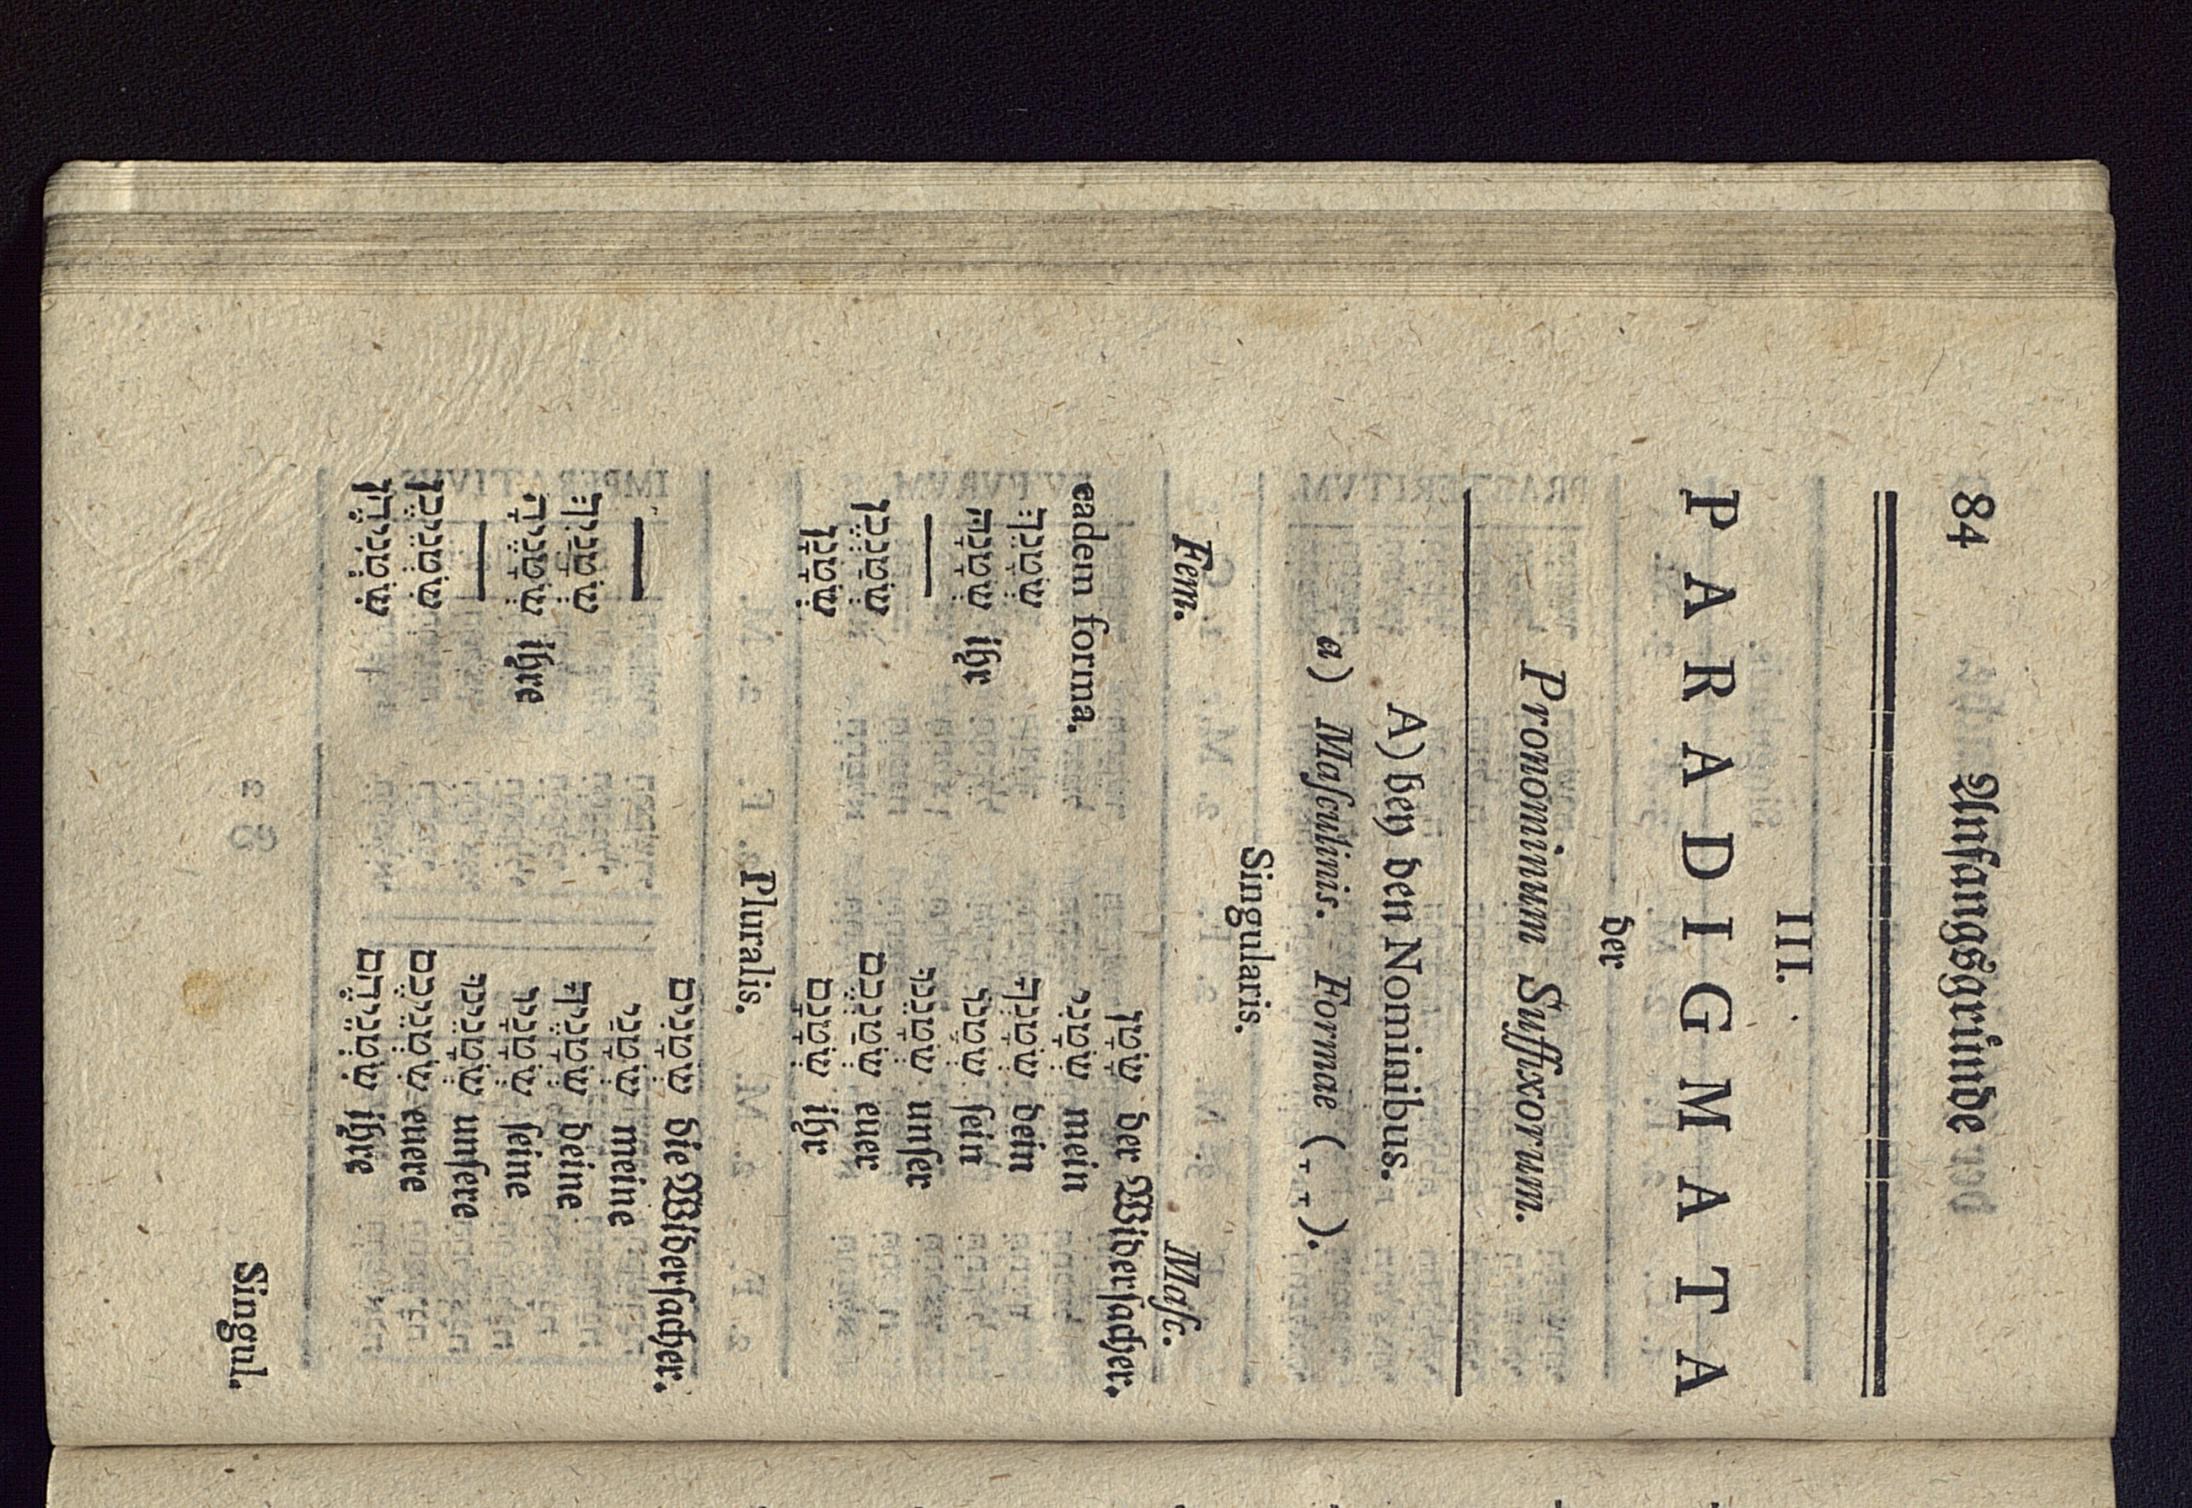 84 Anfangsgründe
III.
PARADIGMATA
der
Pronominum Suffixorum.
A) bey den Nominibus.
a) Masculinis. Formae ( ָ ָ ).
Singularis.
Fem. Masc.
eadem forma. שָׂטָן der Widersacher.
שְׂטָנִי mein
שְׂטָנֵךְ שְׂטָנְךָ dein
שְׂטָנָהּ ihr שְׂטָנוֹ sein
— שְׂטָנֵנוּ unser
שְׂטַנְכֶן שְׂטַנְכֶם euer
שְׂטָנָן שְׂטָנָם ihr
Pluralis.
שְׂטָנִים die Widersacher.
— שְׂטָנַי meine
שְׂטָנַיִךְ שְׂטָנֶיךָ deine
שְׂטָנֶיהָ ihre שְׂטָנָיו seine
— שְׂטָנֵינוּ unsere
שְׂטְנֵיכֶן שְׂטְנֵיכֶם euere
שְׂטְנֵיהֶן שְׂטְנֵיהֶם ihre
Singul.